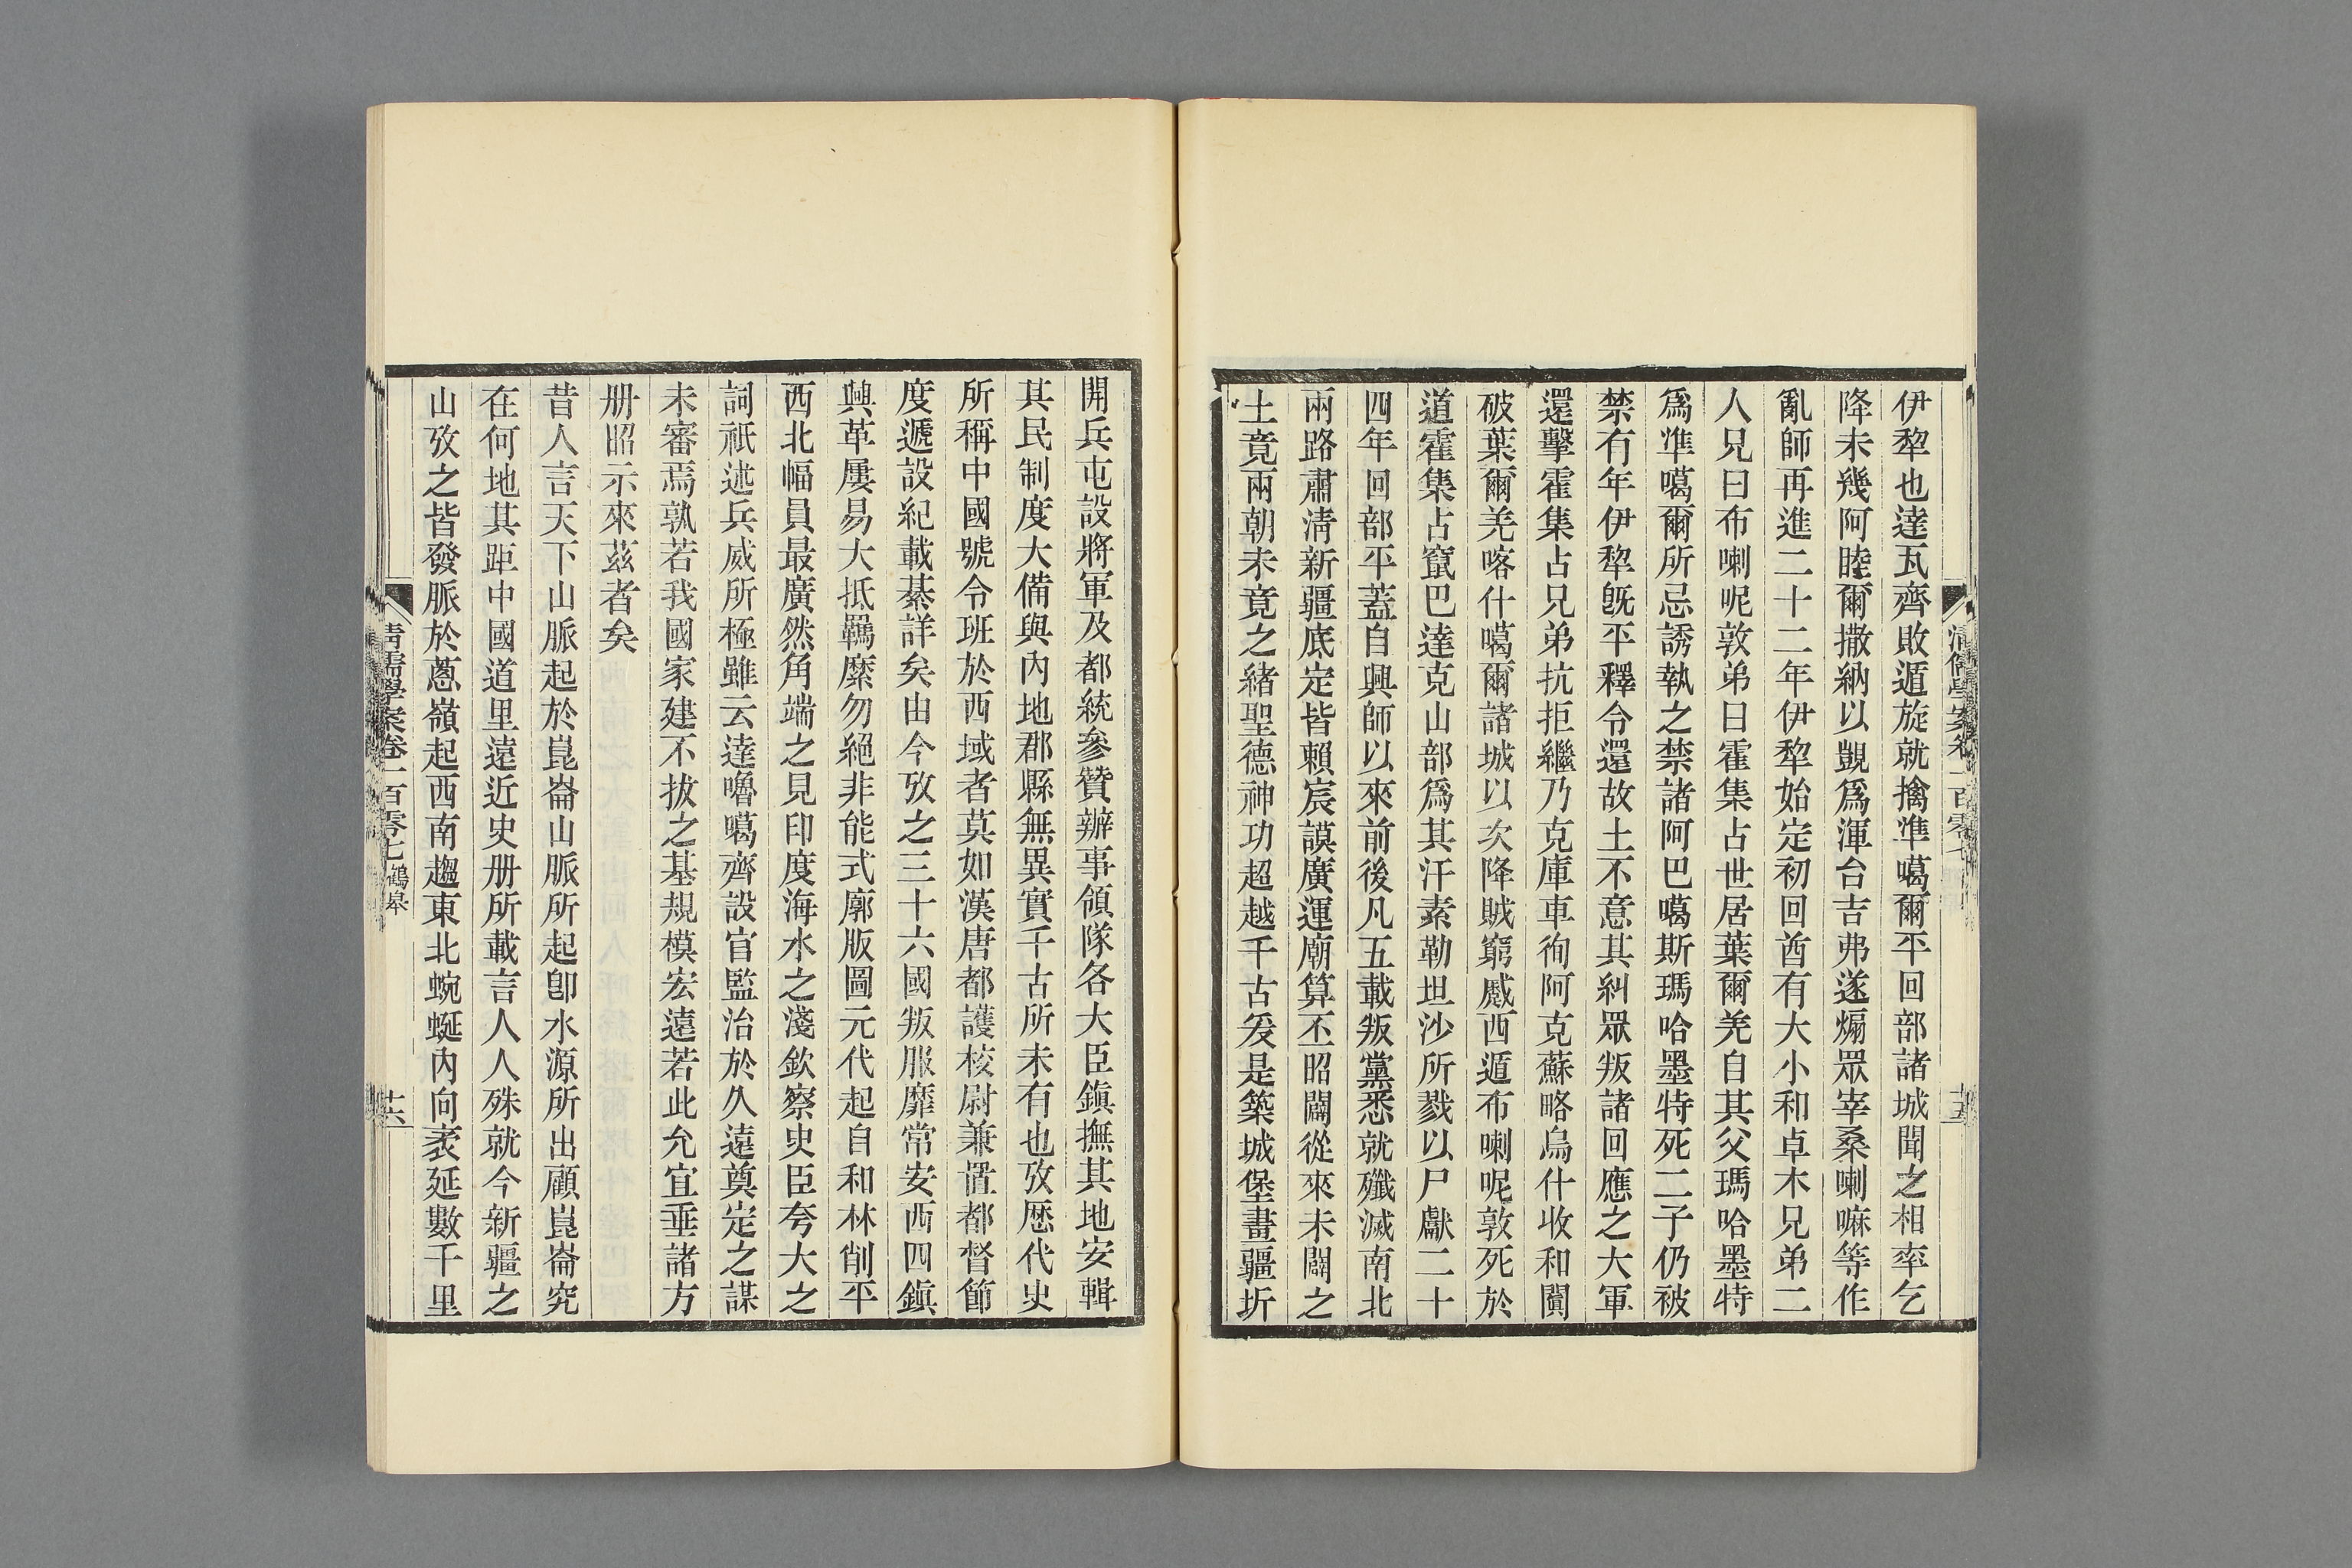 伊犂也達瓦齊敗遁旋就擒準噶爾平回部諸城聞之相率乞
降未幾阿睦爾撒納以覬爲渾台吉弗遂煽眾宰桑喇嘛等作
亂師再進二十二年伊犂始定初回酋有大小和卓木兄弟二
人兄曰布喇呢敦弟曰霍集占世居葉爾羌自其父瑪哈墨特
爲準噶爾所忌誘執之禁諸阿巴噶斯瑪哈墨特死二子仍被
禁有年伊犂旣平釋令還故土不意其糾眾叛諸回應之大軍
還擊霍集占兄弟抗拒繼乃克庫車徇阿克蘇略烏什收和闐
破葉爾羌喀什噶爾諸城以次降賊窮蹙西遁布喇呢敦死於
道霍集占竄巴達克山部爲其汗素勒坦沙所戮以尸獻二十
四年回部平蓋自興師以來前後凡五載叛黨悉就殲滅南北
兩路肅清新疆底定皆賴宸謨廣運廟算丕昭闢從來未闢之
土竟兩朝未竟之緒聖德神功超越千古爰是築城堡畫疆圻
清儒學案卷一百零七
十五
開兵屯設將軍及都統參贊辦事領隊各大臣鎭撫其地安輯
其民制度大備與內地郡縣無異實千古所未有也攷歷代史
所稱中國號令班於西域者莫如漢唐都護校尉兼置都督節
度遞設紀載綦詳矣由今攷之三十六國叛服靡常安西四鎭
興革屢易大抵羈縻勿絕非能式廓版圖元代起自和林削平
西北幅員最廣然角端之見印度海水之淺欽察史臣夸大之
詞祇述兵威所極雖云達嚕噶齊設官監治於久遠奠定之謀
未審焉孰若我國家建不拔之基規模宏遠若此允宜垂諸方
册昭示來茲者矣
昔人言天下山脈起於崑崙山脈所起卽水源所出顧崑崙究
在何地其距中國道里遠近史册所載言人人殊就今新疆之
山攷之皆發脈於蔥嶺起西南趨東北蜿蜒內向袤延數千里
清儒學案卷一百零七 鶴皋
十六